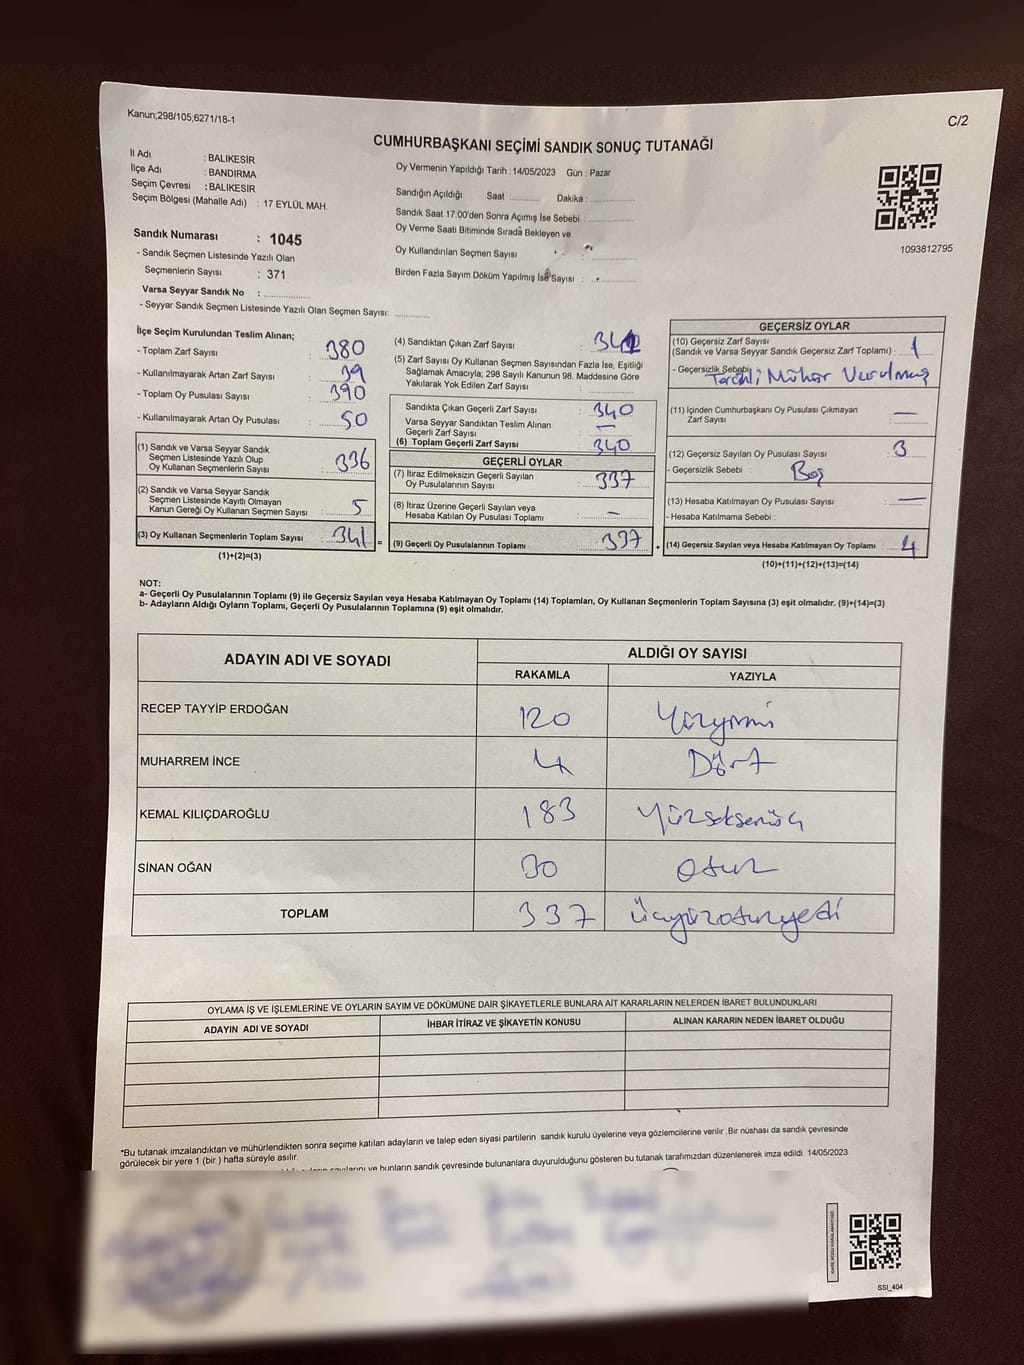 Kanun;298/105;6271/18-1
C/2
CUMHURBAŞKANI SEÇİMİ SANDIK SONUÇ TUTANAĞI
İl Adı : BALIKESİR
İlçe Adı : BANDIRMA
Seçim Çevresi : BALIKESİR
Seçim Bölgesi (Mahalle Adı) : 17 EYLÜL MAH.
Sandık Numarası : 1045
- Sandık Seçmen Listesinde Yazılı Olan
Seçmenlerin Sayısı : 371
Varsa Seyyar Sandık No : ..............
- Seyyar Sandık Seçmen Listesinde Yazılı Olan Seçmen Sayısı: ............
Oy Vermenin Yapıldığı Tarih : 14/05/2023 Gün : Pazar
Sandığın Açıldığı Saat .......... Dakika : ..............
Sandık Saat 17:00'den Sonra Açımış İse Sebebi : ..............
Oy Verme Saati Bitiminde Sırada Bekleyen ve
Oy Kullandırılan Seçmen Sayısı : ..............
Birden Fazla Sayım Döküm Yapılmış İse Sayısı : ..............
1093812795
İlçe Seçim Kurulundan Teslim Alınan;
- Toplam Zarf Sayısı : 380
- Kullanılmayarak Artan Zarf Sayısı : 39
- Toplam Oy Pusulası Sayısı : 390
- Kullanılmayarak Artan Oy Pusulası : 50
(1) Sandık ve Varsa Seyyar Sandık
Seçmen Listesinde Yazılı Olup
Oy Kullanan Seçmenlerin Sayısı : 336
(2) Sandık ve Varsa Seyyar Sandık
Seçmen Listesinde Kayıtlı Olmayan
Kanun Gereği Oy Kullanan Seçmen Sayısı : 5
(3) Oy Kullanan Seçmenlerin Toplam Sayısı : 341 =
(1)+(2)=(3)
(4) Sandıktan Çıkan Zarf Sayısı : 341
(5) Zarf Sayısı Oy Kullanan Seçmen Sayısından Fazla İse, Eşitliği
Sağlamak Amacıyla; 298 Sayılı Kanunun 98. Maddesine Göre
Yakılarak Yok Edilen Zarf Sayısı : ..............
Sandıkta Çıkan Geçerli Zarf Sayısı : 340
Varsa Seyyar Sandıktan Teslim Alınan
Geçerli Zarf Sayısı : —
(6) Toplam Geçerli Zarf Sayısı : 340
GEÇERLİ OYLAR
(7) İtiraz Edilmeksizin Geçerli Sayılan
Oy Pusulalarının Sayısı : 337
(8) İtiraz Üzerine Geçerli Sayılan veya
Hesaba Katılan Oy Pusulası Toplamı : —
(9) Geçerli Oy Pusulalarının Toplamı : 337 +
GEÇERSİZ OYLAR
(10) Geçersiz Zarf Sayısı
(Sandık ve Varsa Seyyar Sandık Geçersiz Zarf Toplamı) : 1
- Geçersizlik Sebebi : Tercihli Mühür Vurulmuş
(11) İçinden Cumhurbaşkanı Oy Pusulası Çıkmayan
Zarf Sayısı : —
(12) Geçersiz Sayılan Oy Pusulası Sayısı : 3
- Geçersizlik Sebebi : Boş
(13) Hesaba Katılmayan Oy Pusulası Sayısı : —
- Hesaba Katılmama Sebebi :
(14) Geçersiz Sayılan veya Hesaba Katılmayan Oy Toplamı : 4
(10)+(11)+(12)+(13)=(14)
NOT:
a- Geçerli Oy Pusulasının Toplamı (9) ile Geçersiz Sayılan veya Hesaba Katılmayan Oy Toplamı (14) Toplamları, Oy Kullanan Seçmenlerin Toplam Sayısına (3) eşit olmalıdır. (9)+(14)=(3)
b- Adayların Aldığı Oyların Toplamı, Geçerli Oy Pusulalarının Toplamına (9) eşit olmalıdır.
ADAYIN ADI VE SOYADI
ALDIĞI OY SAYISI
RAKAMLA YAZIYLA
RECEP TAYYİP ERDOĞAN 120 Yüzyirmi
MUHARREM İNCE 4 Dört
KEMAL KILIÇDAROĞLU 183 Yüzseksenüç
SİNAN OĞAN 30 otuz
TOPLAM 337 Üçyüzotuzyedi
OYLAMA İŞ VE İŞLEMLERİNE VE OYLARIN SAYIM VE DÖKÜMÜNE DAİR ŞİKAYETLERLE BUNLARA AİT KARARLARIN NELERDEN İBARET BULUNDUKLARI
ADAYIN ADI VE SOYADI İHBAR İTİRAZ VE ŞİKAYETİN KONUSU ALINAN KARARIN NEDEN İBARET OLDUĞU
*Bu tutanak imzalandıktan ve mühürlendikten sonra seçime katılan adayların ve talep eden siyasi partilerin sandık kurulu üyelerine veya gözlemcilerine verilir .Bir nüshası da sandık çevresinde
görülecek bir yere 1 (bir ) hafta süreyle asılır.
ve bunların sandık çevresinde bulunanlara duyurulduğunu gösteren bu tutanak tarafımızdan düzenlenerek imza edildi. 14/05/2023
SSI_404